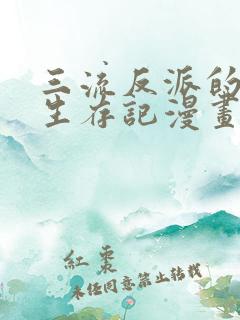 三流反派的
生存記漫畫
紅棗
未經同意禁止轉載